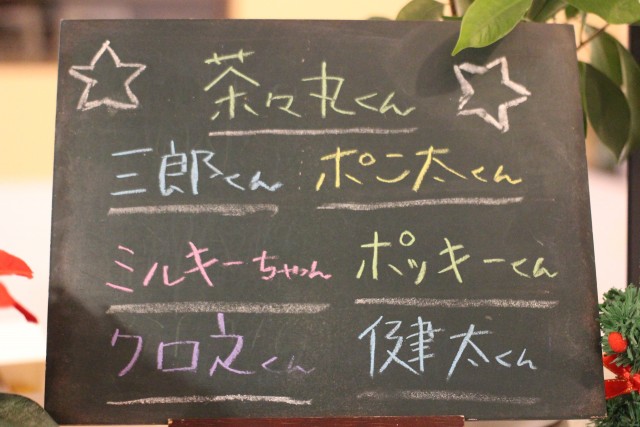 茶々丸くん
三郎くん ポン太くん
ミルキーちゃん ポッキーくん
クロ之くん 健太くん